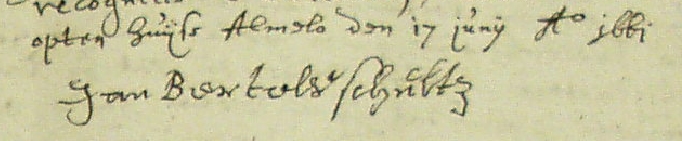 opten huijse Almelo den 17 junij Ao j661
Jan Bertols schultz